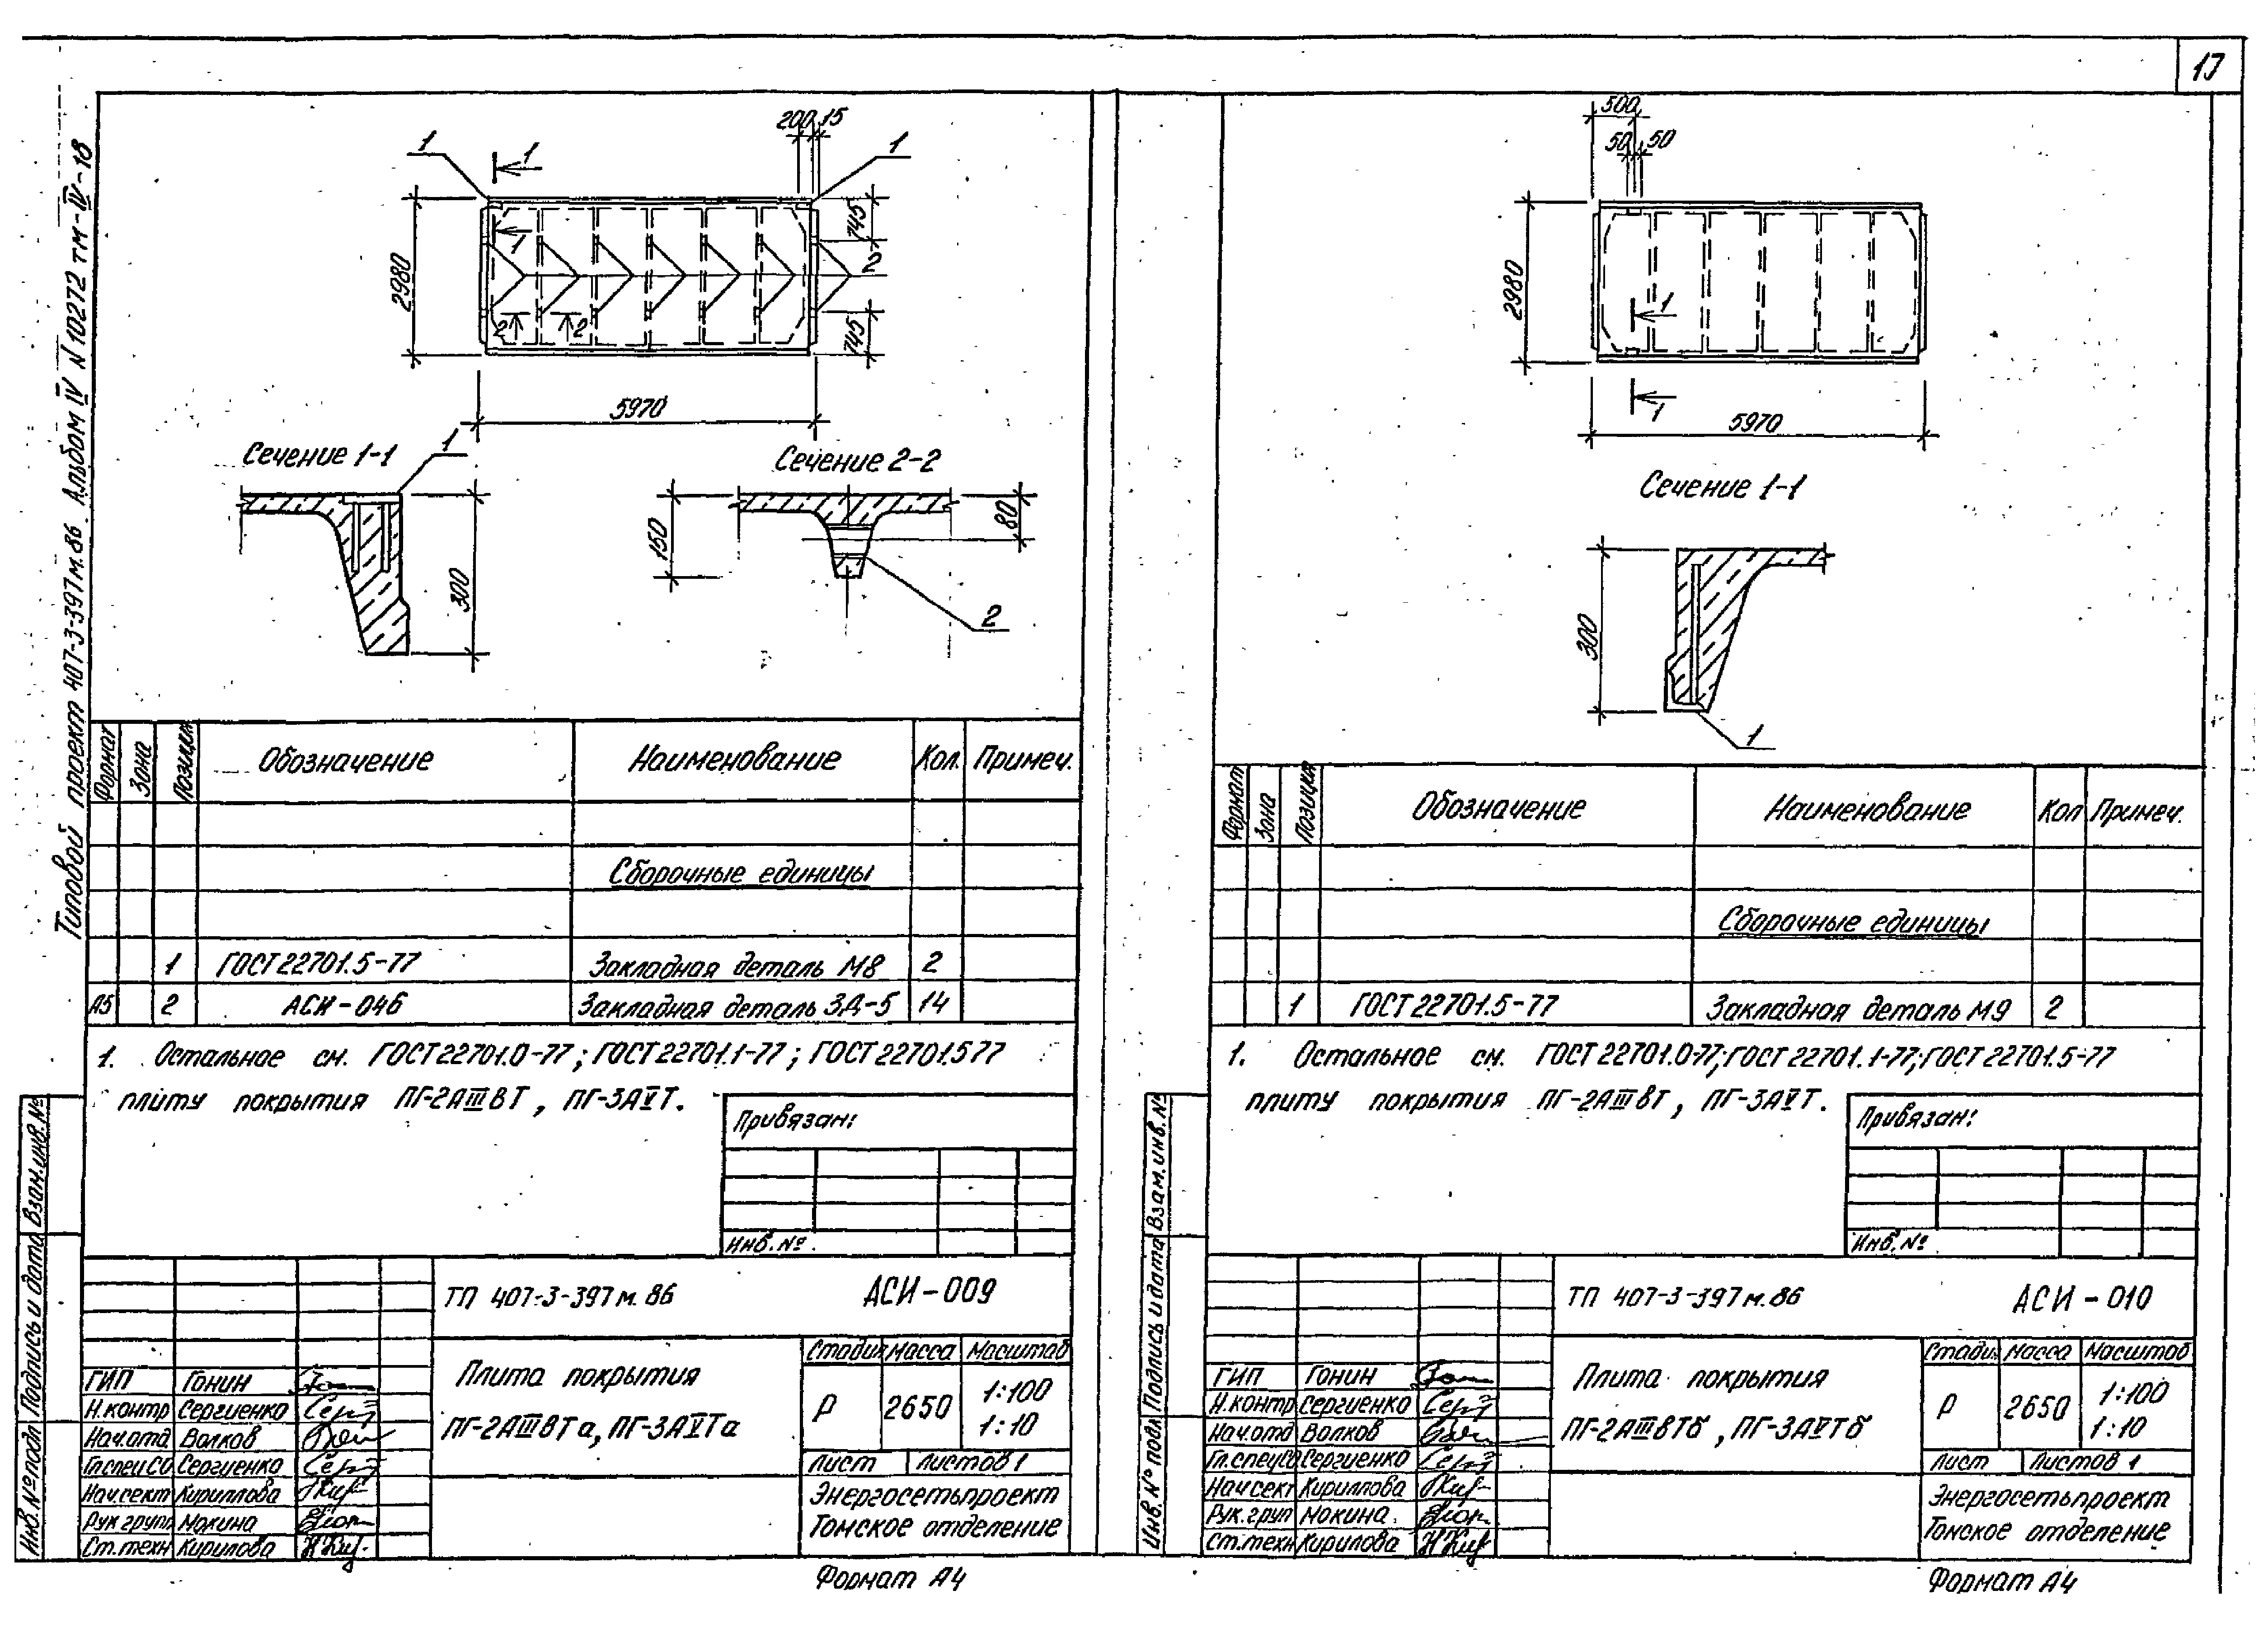 17
Типовой проект 407-3-397м.86 Альбом IV N 10272 тм-IV-18
200 15
1
1
1
745
2980
1
2
2
2
745
5970
Сечение 1-1
1
300
Сечение 2-2
150
80
2
Формат Зона Позиция Обозначение Наименование Кол. Примеч.
Сборочные единицы
1 ГОСТ 22701.5-77 Закладная деталь М8 2
А5 2 АСИ-046 Закладная деталь ЗД-5 14
1. Остальное см. ГОСТ 22701.0-77; ГОСТ 22701.1-77; ГОСТ 22701.5 77
плиту покрытия ПГ-2АIIIВТ, ПГ-3АVТ.
Привязан:
Инв. №
Взам. инв. №
Подпись и дата
Инв. № подл
ТП 407-3-397м.86 АСИ-009
Плита покрытия
ПГ-2АIIIВТа, ПГ-3АVТа
Стадия Масса Масштаб
Р 2650 1:100
1:10
Лист Листов 1
Энергосетьпроект
Томское отделение
ГИП Гонин
Н.контр Сергиенко
Нач.отд Волков
Гл.спец СО Сергиенко
Нач сект Кириллова
Рук групп Мокина
Ст.техн Кирилова
Формат А4
500
50 50
2980
1
1
5970
Сечение 1-1
300
1
Формат Зона Позиция Обозначение Наименование Кол Примеч.
Сборочные единицы
1 ГОСТ 22701.5-77 Закладная деталь М9 2
1. Остальное см. ГОСТ 22701.0-77; ГОСТ 22701.1-77; ГОСТ 22701.5-77
плиту покрытия ПГ-2АIIIВТ, ПГ-3АVТ.
Привязан:
Инв. №
Взам. инв. №
Подпись и дата
Инв. № подл
ТП 407-3-397м.86 АСИ-010
Плита покрытия
ПГ-2АIIIВТб, ПГ-3АVТб
Стадия Масса Масштаб
Р 2650 1:100
1:10
Лист Листов 1
Энергосетьпроект
Томское отделение
ГИП Гонин
Н.контр Сергиенко
Нач.отд Волков
Гл.спец СО Сергиенко
Нач сект Кириллова
Рук. груп Мокина
Ст.техн Кирилова
Формат А4